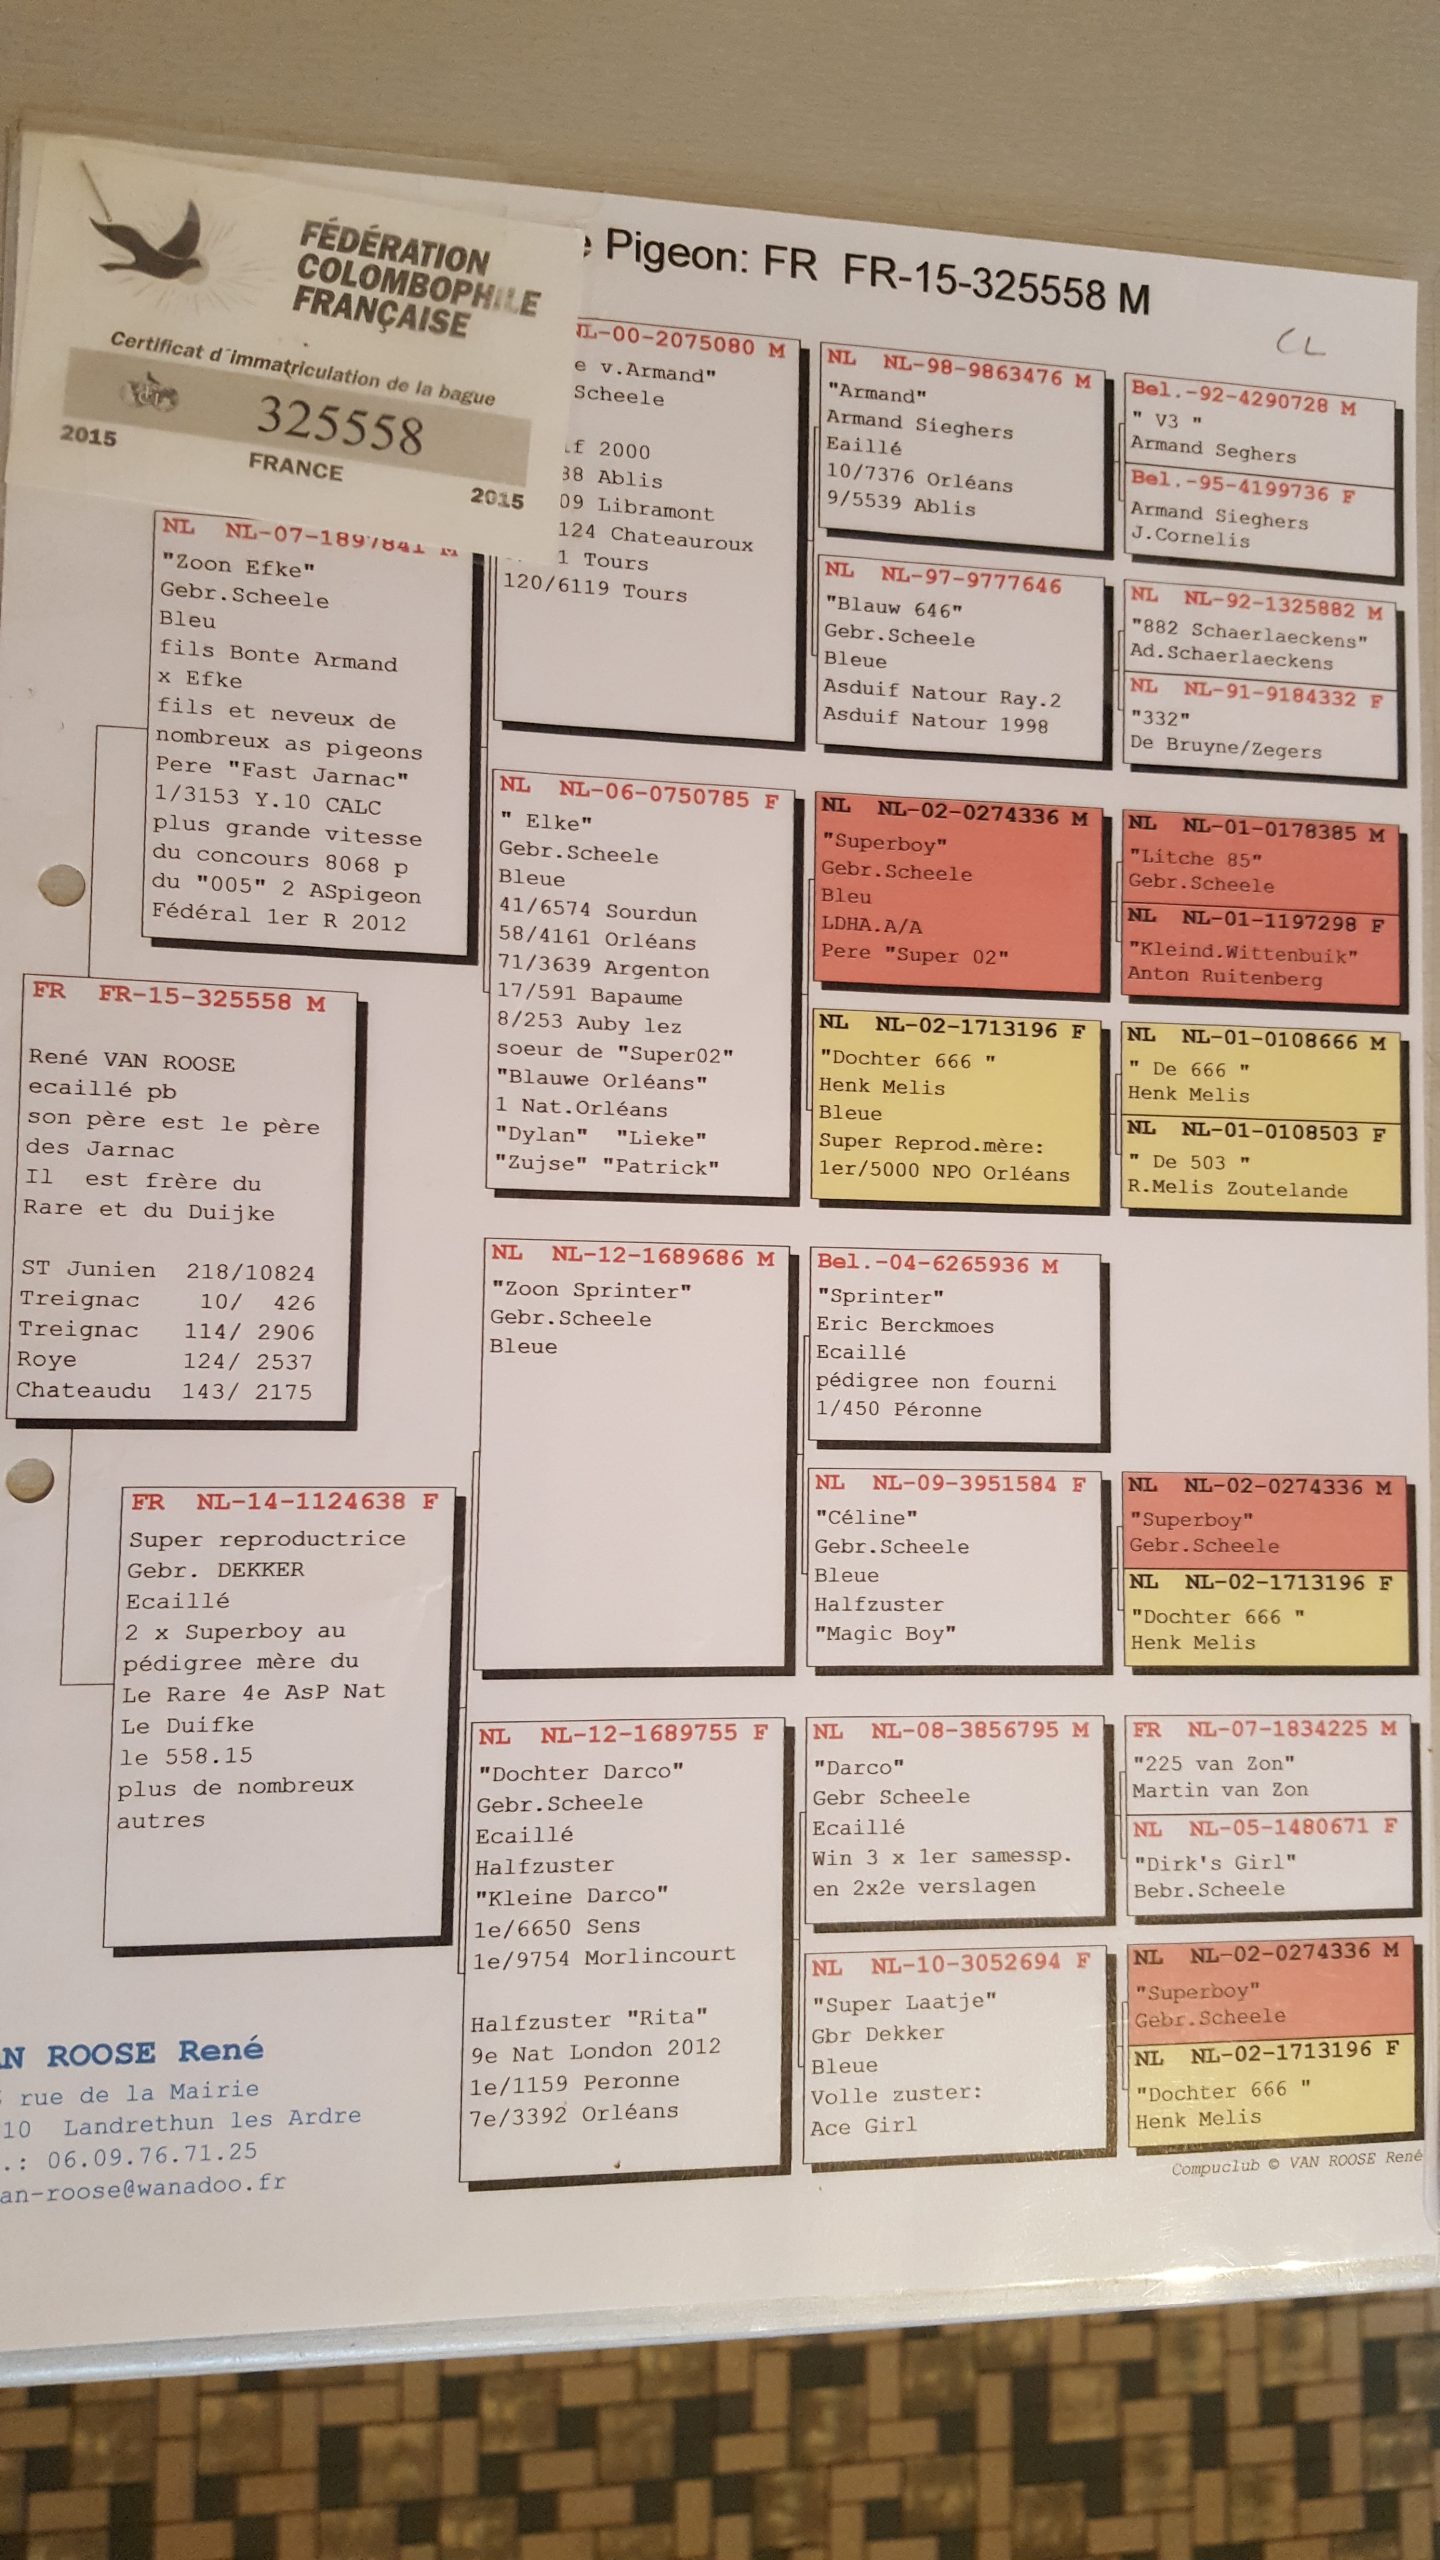 FÉDÉRATION
COLOMBOPHILE
FRANÇAISE
Certificat d'immatriculation de la bague
325558
2015
FRANCE
2015
e Pigeon: FR FR-15-325558 M
CL
NL NL-07-1897841 M
"Zoon Efke"
Gebr.Scheele
Bleu
fils Bonte Armand
x Efke
fils et neveux de
nombreux as pigeons
Pere "Fast Jarnac"
1/3153 Y.10 CALC
plus grande vitesse
du concours 8068 p
du "005" 2 ASpigeon
Fédéral 1er R 2012
FR FR-15-325558 M
René VAN ROOSE
ecaillé pb
son père est le père
des Jarnac
Il est frère du
Rare et du Duijke
ST Junien 218/10824
Treignac 10/ 426
Treignac 114/ 2906
Roye 124/ 2537
Chateaudu 143/ 2175
FR NL-14-1124638 F
Super reproductrice
Gebr. DEKKER
Ecaillé
2 x Superboy au
pédigree mère du
Le Rare 4e AsP Nat
Le Duifke
le 558.15
plus de nombreux
autres
NL-00-2075080 M
e v.Armand"
Scheele
lf 2000
38 Ablis
09 Libramont
124 Chateauroux
1 Tours
120/6119 Tours
NL NL-06-0750785 F
" Elke"
Gebr.Scheele
Bleue
41/6574 Sourdun
58/4161 Orléans
71/3639 Argenton
17/591 Bapaume
8/253 Auby lez
soeur de "Super02"
"Blauwe Orléans"
1 Nat.Orléans
"Dylan" "Lieke"
"Zujse" "Patrick"
NL NL-12-1689686 M
"Zoon Sprinter"
Gebr.Scheele
Bleue
NL NL-12-1689755 F
"Dochter Darco"
Gebr.Scheele
Ecaillé
Halfzuster
"Kleine Darco"
1e/6650 Sens
1e/9754 Morlincourt
Halfzuster "Rita"
9e Nat London 2012
1e/1159 Peronne
7e/3392 Orléans
NL NL-98-9863476 M
"Armand"
Armand Sieghers
Eaillé
10/7376 Orléans
9/5539 Ablis
NL NL-97-9777646
"Blauw 646"
Gebr.Scheele
Bleue
Asduif Natour Ray.2
Asduif Natour 1998
NL NL-02-0274336 M
"Superboy"
Gebr.Scheele
Bleu
LDHA.A/A
Pere "Super 02"
NL NL-02-1713196 F
"Dochter 666 "
Henk Melis
Bleue
Super Reprod.mère:
1er/5000 NPO Orléans
Bel.-04-6265936 M
"Sprinter"
Eric Berckmoes
Ecaillé
pédigree non fourni
1/450 Péronne
NL NL-09-3951584 F
"Céline"
Gebr.Scheele
Bleue
Halfzuster
"Magic Boy"
NL NL-08-3856795 M
"Darco"
Gebr Scheele
Ecaillé
Win 3 x 1er samessp.
en 2x2e verslagen
NL NL-10-3052694 F
"Super Laatje"
Gbr Dekker
Bleue
Volle zuster:
Ace Girl
Bel.-92-4290728 M
" V3 "
Armand Seghers
Bel.-95-4199736 F
Armand Sieghers
J.Cornelis
NL NL-92-1325882 M
"882 Schaerlaeckens"
Ad.Schaerlaeckens
NL NL-91-9184332 F
"332"
De Bruyne/Zegers
NL NL-01-0178385 M
"Litche 85"
Gebr.Scheele
NL NL-01-1197298 F
"Kleind.Wittenbuik"
Anton Ruitenberg
NL NL-01-0108666 M
" De 666 "
Henk Melis
NL NL-01-0108503 F
" De 503 "
R.Melis Zoutelande
NL NL-02-0274336 M
"Superboy"
Gebr.Scheele
NL NL-02-1713196 F
"Dochter 666 "
Henk Melis
FR NL-07-1834225 M
"225 van Zon"
Martin van Zon
NL NL-05-1480671 F
"Dirk's Girl"
Bebr.Scheele
NL NL-02-0274336 M
"Superboy"
Gebr.Scheele
NL NL-02-1713196 F
"Dochter 666 "
Henk Melis
AN ROOSE René
rue de la Mairie
10 Landrethun les Ardre
.: 06.09.76.71.25
an-roose@wanadoo.fr
Compuclub © VAN ROOSE René